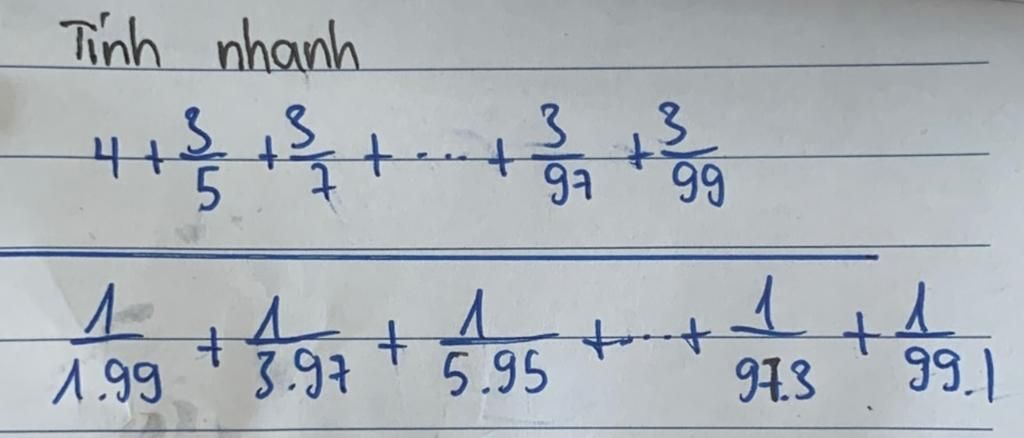 Tính nhanh
4 + 3/5 + 3/7 + ... + 3/97 + 3/99
1/1.99 + 1/3.97 + 1/5.95 + ... + 1/97.3 + 1/99.1